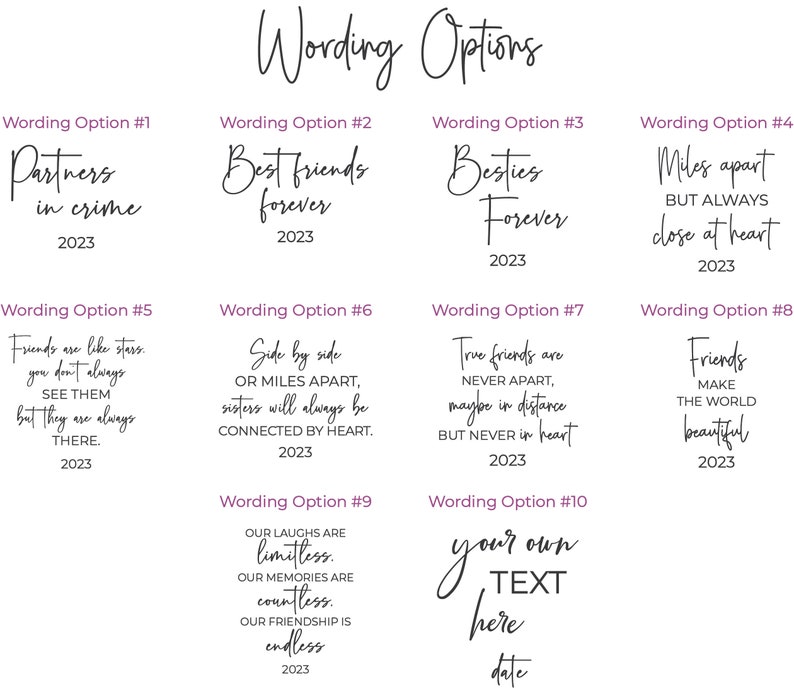 Wording Options
Wording Option #1
Partners
in crime
2023
Wording Option #2
Best friends
forever
2023
Wording Option #3
Besties
Forever
2023
Wording Option #4
Miles apart
BUT ALWAYS
close at heart
2023
Wording Option #5
Friends are like stars.
you don't always
SEE THEM
but they are always
THERE.
2023
Wording Option #6
Side by side
OR MILES APART,
sisters will always be
CONNECTED BY HEART.
2023
Wording Option #7
True friends are
NEVER APART,
maybe in distance
BUT NEVER in heart
2023
Wording Option #8
Friends
MAKE
THE WORLD
beautiful
2023
Wording Option #9
OUR LAUGHS ARE
limitless.
OUR MEMORIES ARE
countless.
OUR FRIENDSHIP IS
endless
2023
Wording Option #10
your own
TEXT
here
date